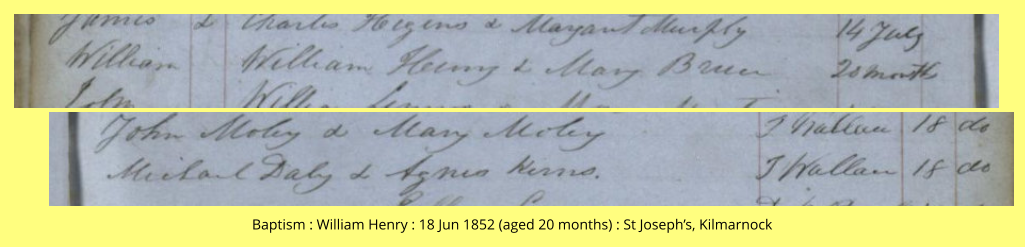 James & Charles Higins & Margaret Murphy 14 July
William William Henry & Mary Breen 20 month
John
John Moley & Mary Moley J Wallace 18 do
Michael Daly & Agnes Kerns. J Wallace 18 do
Baptism : William Henry : 18 Jun 1852 (aged 20 months) : St Joseph’s, Kilmarnock